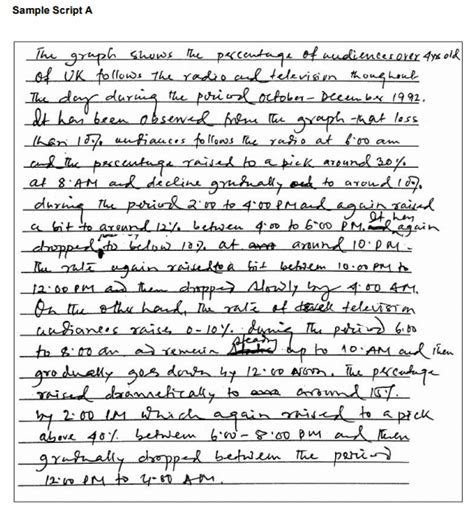 Sample Script A
The graph shows the percentage of audiences over 4yrs old
of UK follows the radio and television thoughout
The day during the period october- December 1992.
It has been observed from the graph that less
than 10% audiances follows the radio at 6:00 am
and the percentage raised to a pick around 30%
at 8:AM and decline gradually to around 10%
during the period 2:00 to 4:00 PM and again raised
a bit to around 12% between 4:00 to 6:00 PM. It has again
dropped to below 10% at around 10:PM.
The rate again raised to a bit between 10:00 PM to
12:00 PM and then dropped slowly by 4:00 AM.
On the other hand, The rate of television
audiances raises 0-10% during the period 6:00
to 8:00 am and remain steady up to 10:AM and then
gradually goes down by 12:00 noon. The percentage
raised dramatically to around 15%
by 2:00 PM which again raised to a pick
above 40% between 6:00 - 8:00 PM and then
gradually dropped between the period
12:00 PM to 4:00 AM.